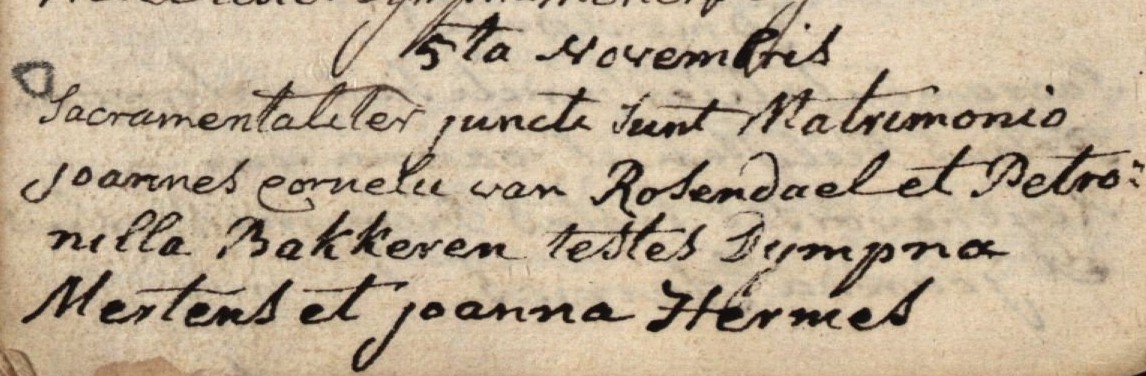 5ta Novembris
Sacramentaliter juncti sunt Matrimonio
joannes cornelii van Rosendael et Petro:
nilla Bakkeren testes Dympna
Mertens et joanna Hermes